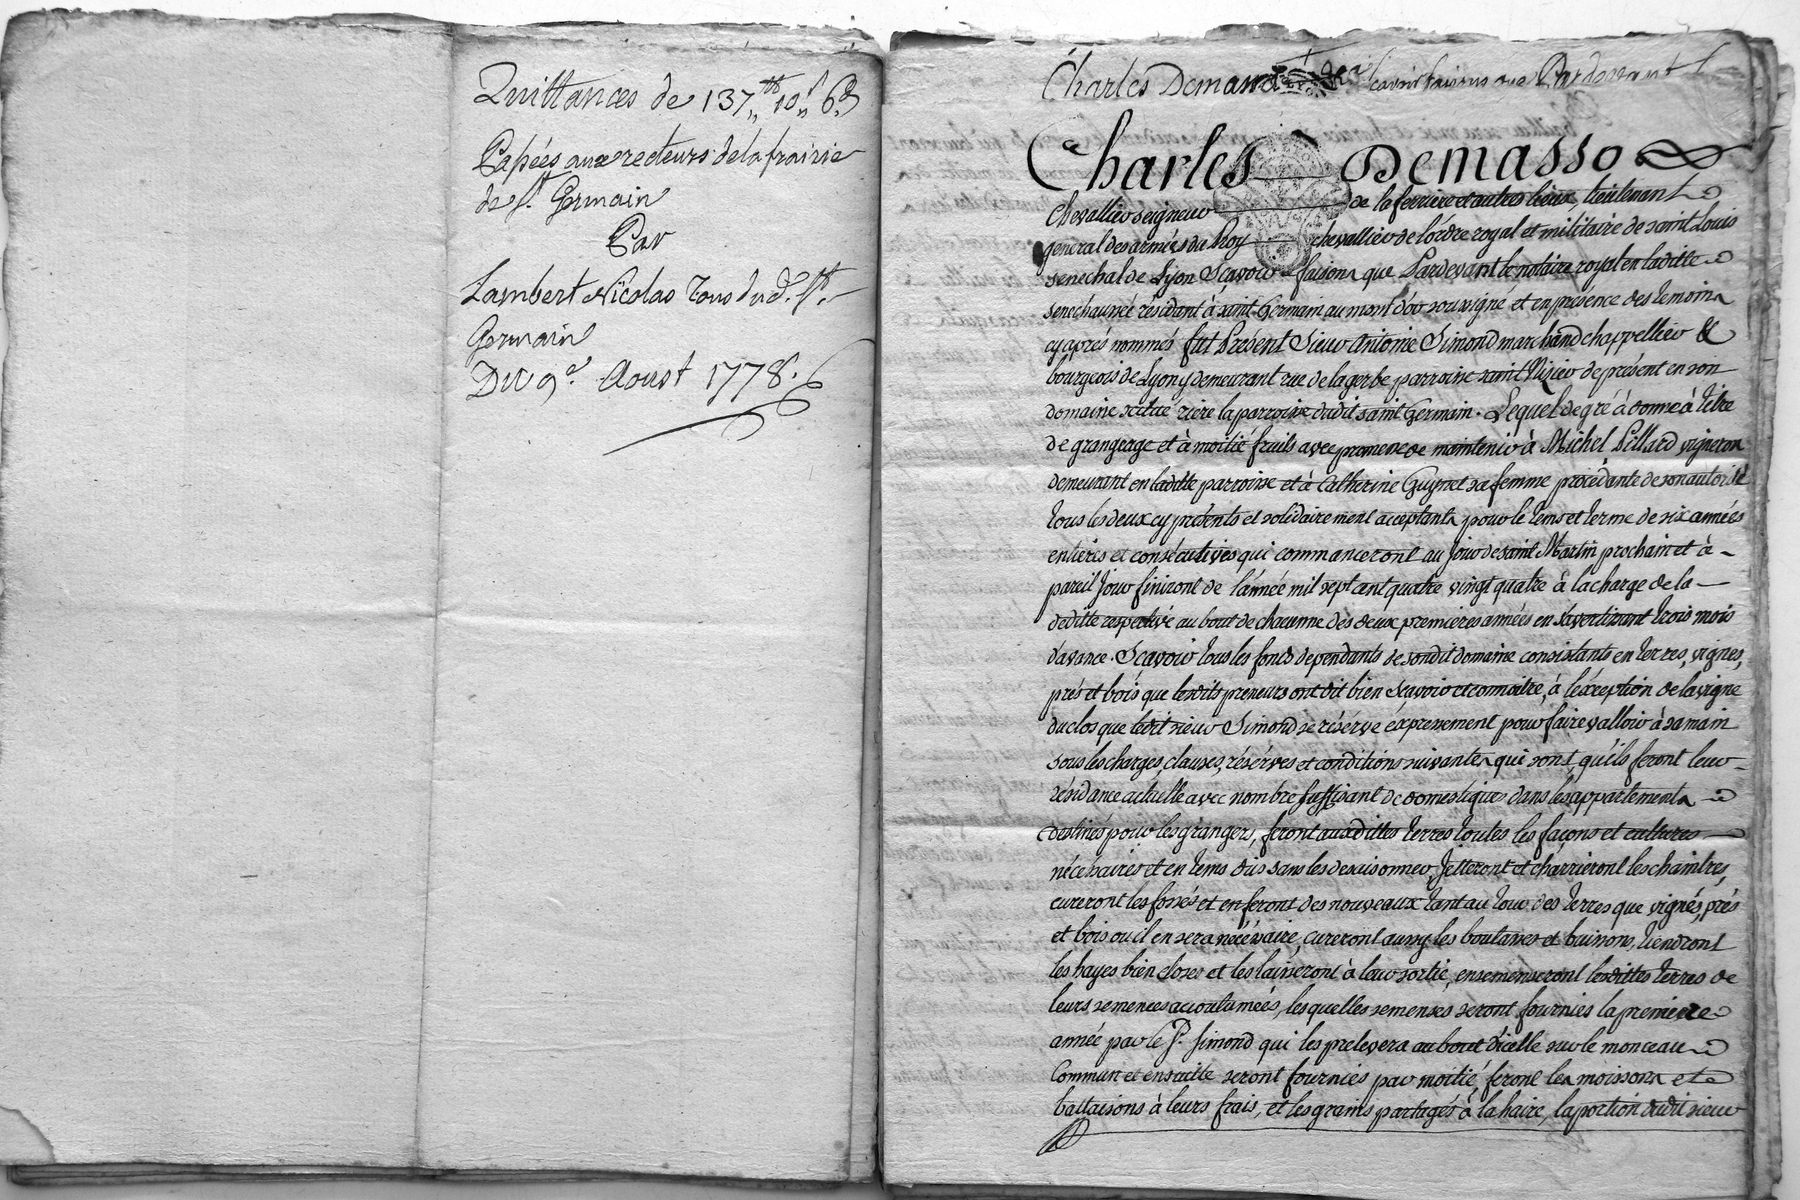 Quittances de 137ᵗᵗ 10ˢ 6ᵈ
Passées aux recteurs de la frairie
de Sᵗ. Germain
Par
Lambert Nicolas Tous du d. Sᵗ.
Germain
Du 9ᵉ. Aoust 1778.
Charles Demasso scavoir faisons que Pardevant
Charles Demasso
Chevallier seigneur de la ferriere et autres lieux, lieutenant
general des armées du Roy chevallier de l'ordre royal et militaire de saint Louis
senechal de Lyon Scavoir faisons que Pardevant le notaire royal en laditte
senechaussée résidant à saint Germain au mont d'or soussigné et en presence des temoins
cy aprés nommés fut Présent Sieur Antoine Simond marchand chappellier &
bourgeois de Lyon y demeurant rue de la gerbe parroisse saint Nisier de présent en son
domaine scitué rière la parroisse dudit saint Germain. Lequel de gré à donné à titre
de grangeage et à moitié fruits avec promesse de maintenir à Michel Pillard vigneron
demeurant en laditte parroisse et à Catherine Guynet sa femme procédante de son autorité
tous les deux cy présents et solidairement acceptants pour le tems et terme de six années
entieres et consécutives qui commanceront au jour de saint Martin prochain et à
pareil jour finiront de l'année mil sept cent quatre vingt quatre à la charge de la
deditte respective au bout de chacunne des deux premieres années en s'avertissant trois mois
d'avance. Scavoir tous les fonds dependants de sondit domaine consistants en terres, vignes,
prés et bois que lesdits preneurs ont dit bien scavoir et connoitre, à l'éxception de la vigne
du clos que ledit sieur Simond se réserve expressement pour faire valloir à sa main
sous les charges, clauses, réserves et conditions suivantes qui sont, qu'ils feront leur
résidance actuelle avec nombre suffisant de domestiques dans les appartements
destinés pour les grangers, feront auxdittes terres toutes les façons et cultures
nécéssaires et en tems dus sans les desaisonner, jetteront et charrieront les chaintres,
cureront les fossés et en feront des nouveaux tant au tour des terres que vignes, prés
et bois ou il en sera nécéssaire, cureront aussy les boutasses et buissons, tiendront
les hayes bien closes et les laisseront à leur sortie, ensemenseront lesdittes terres de
leurs semences accoutumées, lesquelles semensés seront fournies la premiere
année par le Sʳ. Simond qui les prelevera au bout d'icelle sur le monceau
Commun et ensuitte seront fournies par moitié, feront les moissons et
battaisons à leurs frais, et les grains partagés à la haire, la portion dudit sieur